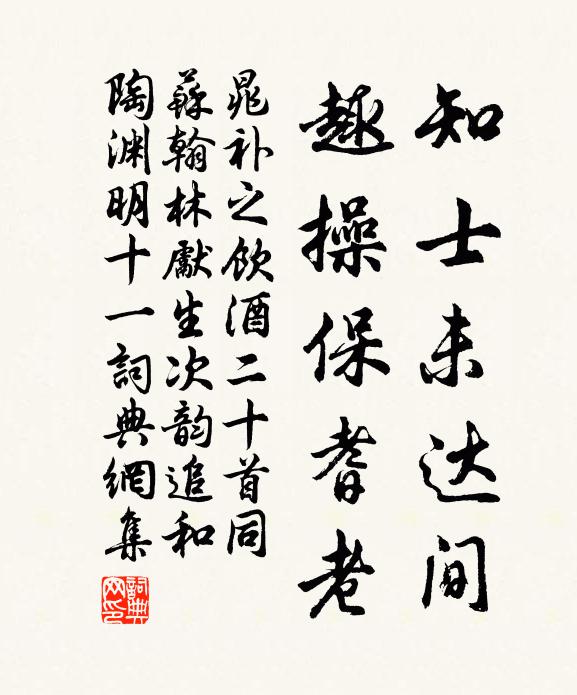 知士未达间
趣操保耆老
晁补之饮酒二十首同
蘇翰林獻生次韵追和
陶渊明十一詞典網集
詞典
网印